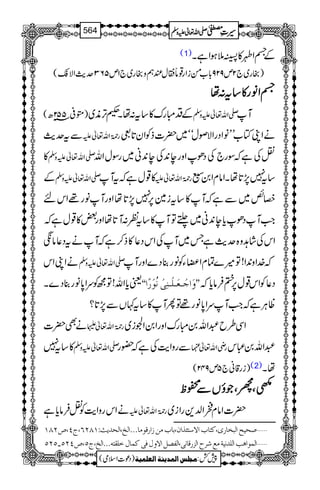 سیرتِ مصطفیٰ صلی اللہ تعالیٰ علیہ وسلم 564
کے جسم اطہر کا پسینہ ملا ہوا ہے۔ (1)
(بخاری ج۲ ص۹۲۹ باب من زار قوماً فقال عندہم و بخاری ج۱ ص۳۶۵ حدیث الافک)
جسم انور کا سایہ نہ تھا
آپ صلی اللہ تعالیٰ علیہ وسلم کے قد مبارک کا سایہ نہ تھا۔ حکیم ترمذی (متوفی ۲۵۵ھ)
نے اپنی کتاب ''نوادر الاصول'' میں حضرت ذکوان تابعی رحمۃ اللہ تعالیٰ علیہ سے یہ حدیث
نقل کی ہے کہ سورج کی دھوپ اور چاند کی چاندنی میں رسول اللہ صلی اللہ تعالیٰ علیہ وسلم کا
سایہ نہیں پڑتا تھا۔ امام ابن سبع رحمۃ اللہ تعالیٰ علیہ کا قول ہے کہ یہ آپ صلی اللہ تعالیٰ علیہ وسلم کے
خصائص میں سے ہے کہ آپ کا سایہ زمین پر نہیں پڑتا تھا اور آپ نور تھے اس لئے
جب آپ دھوپ یا چاندنی میں چلتے تو آپ کا سایہ نظر نہ آتا تھا اور بعض کا قول ہے کہ
اس کی شاہد وہ حدیث ہے جس میں آپ کی اس دعا کا ذکر ہے کہ آپ نے یہ دعا مانگی
کہ خداوندا! تو میرے تمام اعضاء کو نور بنا دے اور آپ صلی اللہ تعالیٰ علیہ وسلم نے اپنی اس
دعا کو اس قول پر ختم فرمایا کہ ''وَاجْعَلْنِیْ نُوْرًا'' یعنی یا اللہ! تو مجھ کو سراپا نور بنا دے۔
ظاہر ہے کہ جب آپ سراپا نور تھے تو پھر آپ کا سایہ کہاں سے پڑتا؟
اسی طرح عبد اللہ بن مبارک اور ابن الجوزی رحمۃ اللہ تعالیٰ علیہما نے بھی حضرت
عبد اللہ بن عباس رضی اللہ تعالیٰ عنہما سے روایت کی ہے کہ حضور صلی اللہ تعالیٰ علیہ وسلم کا سایہ نہیں
تھا۔ (2) (زرقانی ج۵ ص۲۴۹)
مکھی، مچھر، جوؤں سے محفوظ
حضرت امام فخر الدین رازی رحمۃ اللہ تعالیٰ علیہ نے اس روایت کو نقل فرمایا ہے
صحیح البخاری، کتاب الاستئذان، باب من زار قوما...الخ، الحدیث: ۶۲۸۱، ج۴، ص۱۸۲
المواھب اللدنیۃ مع شرح الزرقانی، الفصل الاول فی کمال خلقتہ...الخ، ج۵، ص۵۲۴۔۵۲۵
پیش کش: مجلس المدینۃ العلمیۃ (دعوتِ اسلامی)